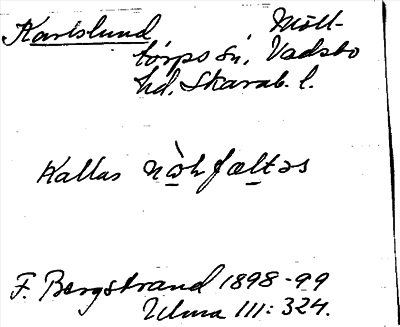 Karlslund, Mölltorps sn, Vadsbo
hd, Skarab. l.
Kallas
F. Bergstrand 1898-99
Ulma 111: 324.